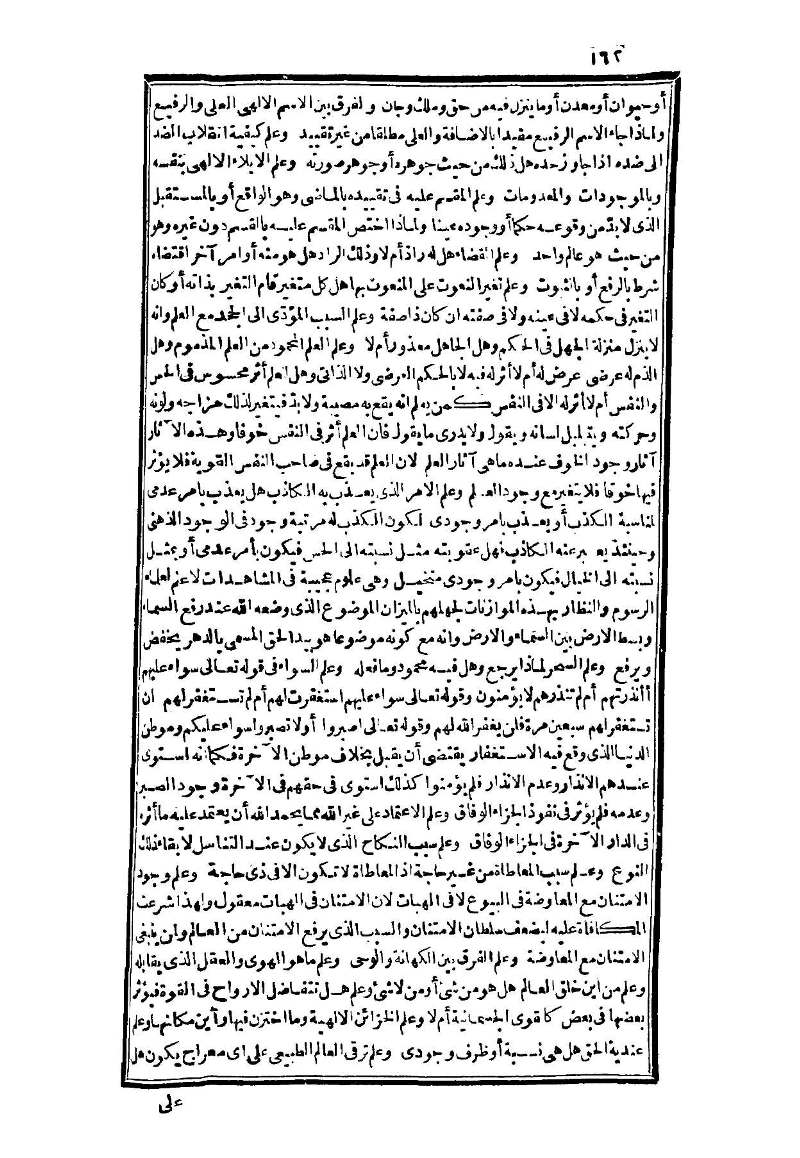 ١٦٢
أو حيوان أو معدن أو ما ينزل فيه من حق وملك وجان والفرق بين الاسم الالهى العلى والرفيع
ولماذا جاء الاسم الرفيع مقيدا بالاضافة والعلى مطلقا من غير تقييد وعلم كيفية انقلاب الضد
الى ضده اذا جاوز حده هل ذلك من حيث جوهره أو جوهر صورته وعلم الايلاء الالهى بنفسه
وبالموجودات والمعدومات وعلم المقسم عليه فى تقييده بالماضى وهو الواقع أو بالمستقبل
الذى لابد من وقوعه حكما أو وجوده عينا ولماذا اختص المقسم عليه بالقسم دون غيره وهو
من حيث هو عالم واحد وعلم القضاء هل له راد أم لا وذلك الراد هل هو منه أو أمر آخر اقتضاه
شرط بالرفع أو بالثبوت وعلم تغير النعوت على المنعوت بها هل كل متغير قام التغير بذاته أو كان
التغير فى حكمه لا فى عينه ولا فى صفته ان كان ذا صفة وعلم السبب المؤدّى الى الجحد مع العلم وانه
لا ينزل منزلة الجهل فى الحكم وهل الجاهل معذور أم لا وعلم العلم المحمود من العلم المذموم وهل
الذم له عرضى عرض له أم لا أثر له فيه لا بالحكم العرضى ولا الذاتى وهل العلم أثر محسوس فى الحس
والنفس أم لا أثر له الا فى النفس كمن يعلم انه يقع به مصيبة ولابد فيتغير لذلك مزاجه ولونه
وحركته ويتبلبل لسانه ويقول ولا يدرى ما يقول فان العلم أثر فى النفس خوفا وهذه الآثار
آثار وجود الخوف عنده ما هى آثار العلم لان العلم قد يقع فى صاحب النفس القوية فلا يؤثر
فيها خوفا فلا يتغير مع وجود العلم وعلم الامر الذى يعذب به الكاذب هل يعذب بامر عدمى
لمناسبة الكذب أو يعذب بامر وجودى لكون الكذب له مرتبة وجود فى الوجود الذهنى
وحينئذ يعبر عنه الكاذب فهل عقوبته مثل نسبته الى الحس فيكون بأمر عدمى أو بمثل
نسبته الى الخيال فيكون بامر وجودى متخيل وهى علوم عجيبة فى المشاهدات لا علم لعلماء
الرسوم والنظار بهذه الموازنات لجهلهم بالميزان الموضوع الذى وضعه الله عند رفع السماء
وبسط الارض بين السماء والارض وانه مع كونه موضوعا هو بيد الحق المسمى بالدهر يخفض
ويرفع وعلم السحر لماذا يرجع وهل فيه محمود وما فعله وعلم السواء فى قوله تعالى سواء عليهم
أأنذرتهم أم لم تنذرهم لا يؤمنون وقوله تعالى سواء عليهم استغفرت لهم أم لم تستغفر لهم ان
تستغفر لهم سبعين مرة فلن يغفر الله لهم وقوله تعالى اصبروا أولا تصبروا سواء عليكم وموطن
الدنيا الذى وقع فيه الاستغفار يقتضى أن يقبل بخلاف موطن الآخرة فكما انه استوى
عندهم الانذار وعدم الانذار فلم يؤمنوا كذلك استوى فى حقهم فى الآخرة وجود الصبر
وعدمه فلم يؤثر فى نفوذ الجزاء الوفاق وعلم الاعتماد على غير الله مما يحمد الله أن يعتمد عليه ما أثره
فى الدار الآخرة فى الجزاء الوفاق وعلم سبب النكاح الذى لا يكون عند التناسل لابقاء ذلك
النوع وعلم سبب المعاطاة من غير حاجة اذ المعاطاة لا تكون الا فى ذى حاجة وعلم وجود
الامتنان مع المعاوضة فى البيوع لا فى الهبات لان الامتنان فى الهبات معقول ولهذا شرعت
المكافاة عليه ليضعف سلطان الامتنان والسبب الذى يرفع الامتنان من العالم ولمن ينبغى
الامتنان مع المعاوضة وعلم الفرق بين الكهانة والوحى وعلم ما هو الهوى والعقل الذى يقابله
وعلم من اين خلق العالم هل هو من شئ أو من لا شئ وعلم هل تتفاضل الارواح فى القوة فيؤثر
بعضها فى بعض كما قوى الجسمانية أم لا وعلم الخزائن الالهية وما اختزن فيها وأين مكانها وعلم
عندية الحق هل هى نسبة أو ظرف وجودى وعلم ترقى العالم الطبيعى على اى معراج يكون هل
على